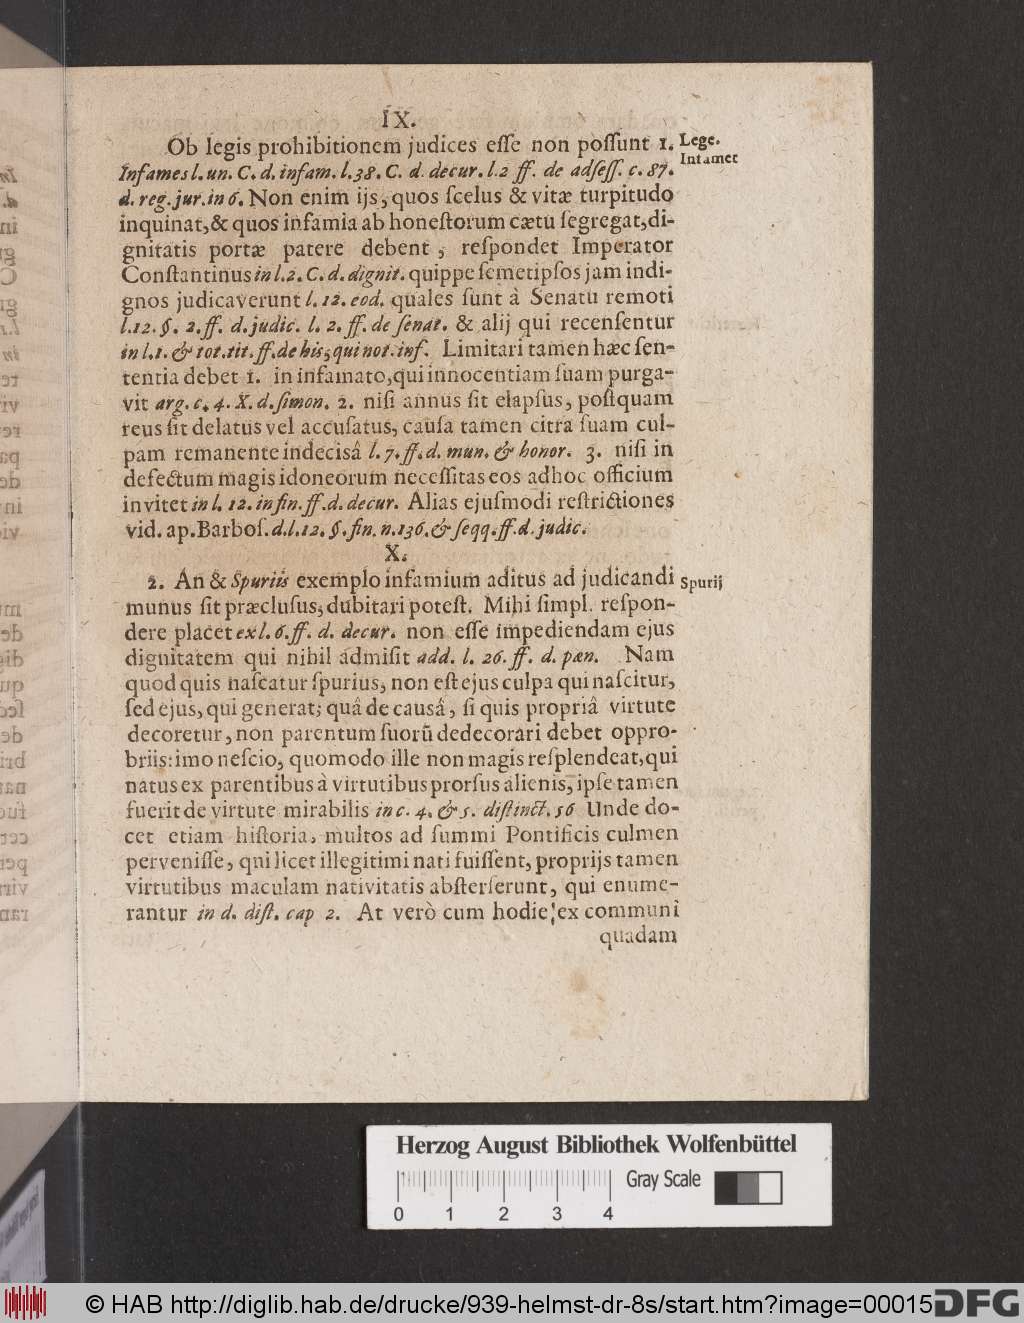 IX.
Ob legis prohibitionem judices eſſe non poſſunt 1. Lege.
Infames l. un. C. d. infam. l. 38. C. d. decur. l. 2 ff. de adſeſſ. c. 87. Infames
d. reg. jur. in 6. Non enim ijs, quos ſcelus & vitæ turpitudo
inquinat, & quos infamia ab honeſtorum cætu ſegregat, di-
gnitatis portæ patere debent, reſpondet Imperator
Conſtantinus in l. 2. C. d. dignit. quippe ſemetipſos jam indi-
gnos judicaverunt l. 12. eod. quales ſunt à Senatu remoti
l. 12. §. 2. ff. d. judic. l. 2. ff. de ſenat. & alij qui recenſentur
in l. 1. & tot. tit. ff. de his, qui not. inf. Limitari tamen hæc ſen-
tentia debet 1. in infamato, qui innocentiam ſuam purga-
vit arg. c. 4. X. d. ſimon. 2. niſi annus ſit elapſus, poſtquam
reus ſit delatus vel accuſatus, cauſa tamen citra ſuam cul-
pam remanente indecisâ l. 7. ff. d. mun. & honor. 3. niſi in
defectum magis idoneorum neceſſitas eos adhoc officium
invitet in l. 12. in fin. ff. d. decur. Alias ejuſmodi reſtrictiones
vid. ap. Barboſ. d. l. 12. §. fin. n. 136. & ſeqq. ff. d. judic.
X.
2. An & Spuriis exemplo infamium aditus ad judicandi Spurij
munus ſit præcluſus, dubitari poteſt. Mihi ſimpl. reſpon-
dere placet ex l. 6. ff. d. decur. non eſſe impediendam ejus
dignitatem qui nihil admiſit add. l. 26. ff. d. pæn. Nam
quod quis naſcatur ſpurius, non eſt ejus culpa qui naſcitur,
ſed ejus, qui generat; quâ de causâ, ſi quis propriâ virtute
decoretur, non parentum ſuorũ dedecorari debet oppro-
briis: imo neſcio, quomodo ille non magis reſplendeat, qui
natus ex parentibus à virtutibus prorſus alienis, ipſe tamen
fuerit de virtute mirabilis in c. 4. & 5. diſtinct. 56 Unde do-
cet etiam hiſtoria, multos ad ſummi Pontificis culmen
perveniſſe, qui licet illegitimi nati fuiſſent, proprijs tamen
virtutibus maculam nativitatis abſterſerunt, qui enume-
rantur in d. diſt. cap 2. At verò cum hodie ex communi
quadam
Herzog August Bibliothek Wolfenbüttel
Gray Scale
0 1 2 3 4
© HAB http://diglib.hab.de/drucke/939-helmst-dr-8s/start.htm?image=00015
DFG